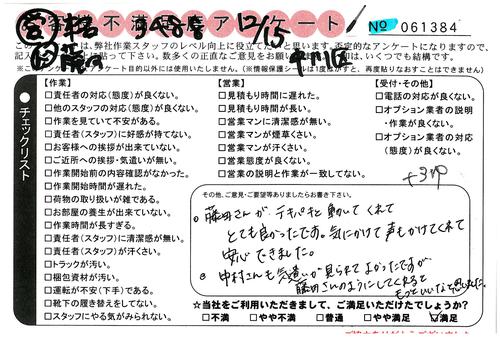 お客様不満足度アンケート
12/15
No 061384
は、弊社作業スタッフのレベル向上に役立てたいと思います。否定的なアンケートになりますので、
【作業】
□責任者の対応(態度)が良くない。
□他のスタッフの対応(態度)が良くない。
□作業を見ていて不安がある。
□責任者(スタッフ)に好感が持てない。
□お客様への挨拶が出来ていない。
□ご近所への挨拶・気遣いが無い。
□作業開始前の内容確認がなかった。
□作業開始時間が遅れた。
□荷物の取り扱いが雑である。
□お部屋の養生が出来ていない。
□作業時間が長すぎる。
□責任者(スタッフ)に清潔感が無い。
□責任者(スタッフ)が汗くさい。
□トラックが汚い。
□梱包資材が汚い。
□運転が不安(下手)である。
□靴下の履き替えをしてない。
□スタッフにやる気がみられない。
チェックリスト
【営業】
□見積もり時間に遅れた。
□見積もり時間が長い。
□営業マンに清潔感が無い。
□営業マンが煙草くさい。
□営業マンが汗くさい。
□営業態度が良くない。
□営業の説明と作業が一致してない。
【受付・その他】
□電話の対応が良くない。
□オプション業者の説明
・作業が良くない。
□オプション業者の対応
(態度)が良くない。
その他、ご意見・ご要望等ありましたらお書き下さい。
藤田さんが、テキパキと動いてくれて
とても良かったです。気にかけて声もかけてくれて
安心できました。
中村さんも気遣いが見られてよかったですが
藤田さんのようにしてくれると
もっといいなと思いました。
☆当社をご利用いただきまして、ご満足いただけたでしょうか?
□不満 □やや不満 □普通 □やや満足 ☑満足